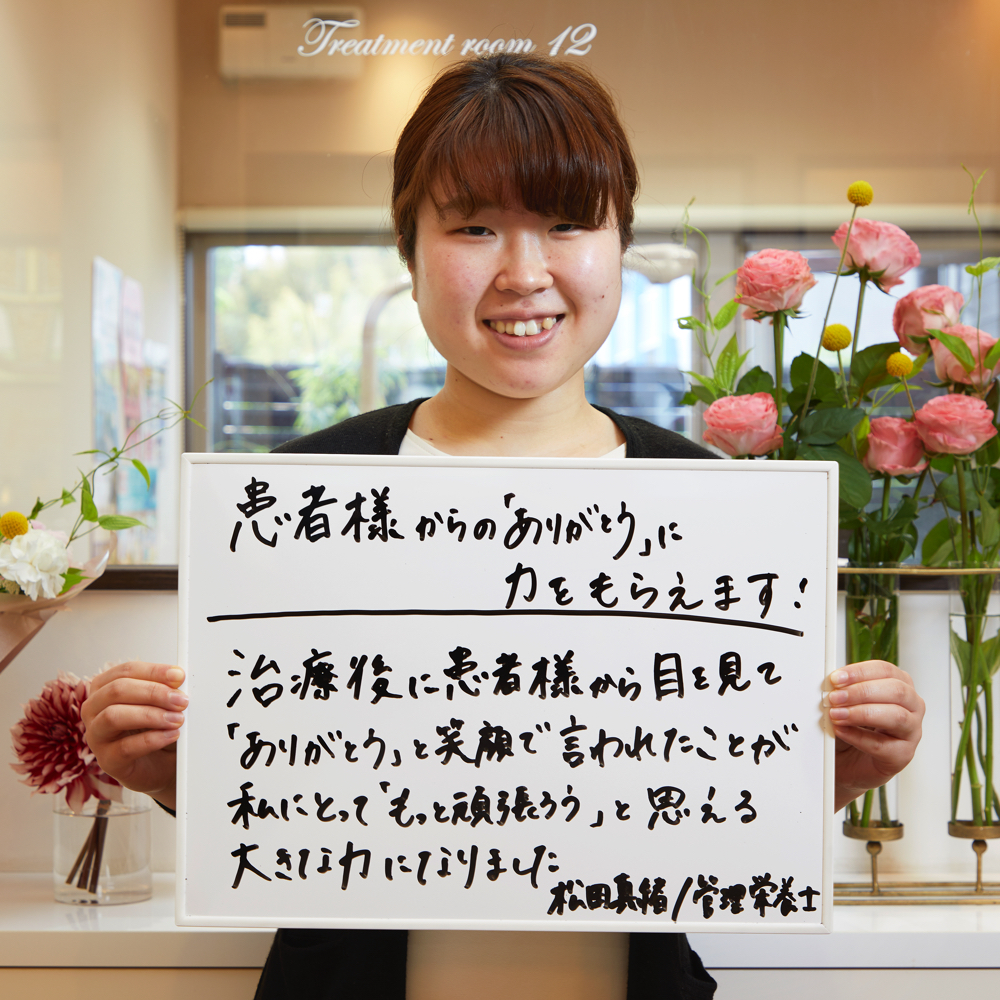 Treatment room 12
患者様からの「ありがとう」に
力をもらえます!
治療後に患者様から目を見て
「ありがとう」と笑顔で言われたことが
私にとって「もっと頑張ろう」と思える
大きな力になりました
松田真緒/管理栄養士